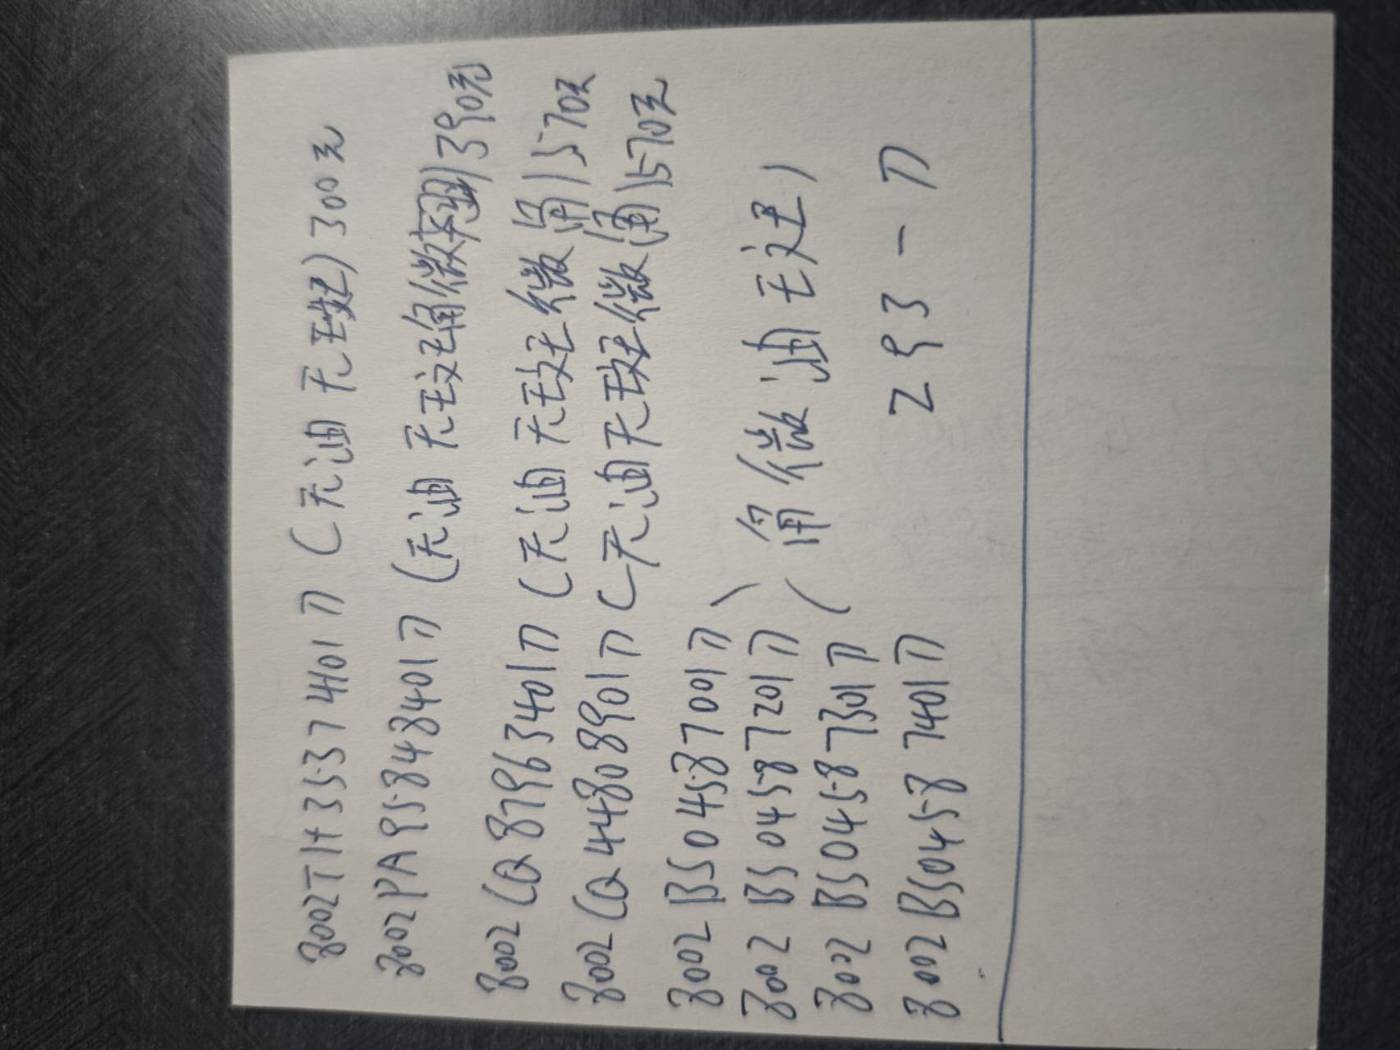 8002TH35374401刀（无油无斑）300元
8002PA95848401刀（无油无斑角微翘）390元
8002CQ87963401刀（无油无斑微角）570元
8002CQ44808901刀（无油无斑微角）570元
8002BS04587001刀
8002BS04587201刀
8002BS04587301刀（角微油无斑）
8002BS04587401刀 293一刀